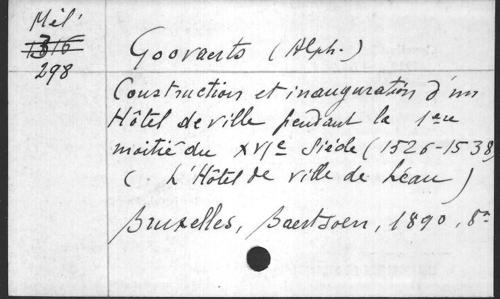 Mél.
1316
298
Goovaerts (Alph.)
Construction et inauguration d'un
Hôtel de ville pendant la 1ère
moitié du XVIe Siècle (1526-1538)
( L'Hôtel de ville de Léau )
Bruxelles, Baertsoen, 1890, 8°